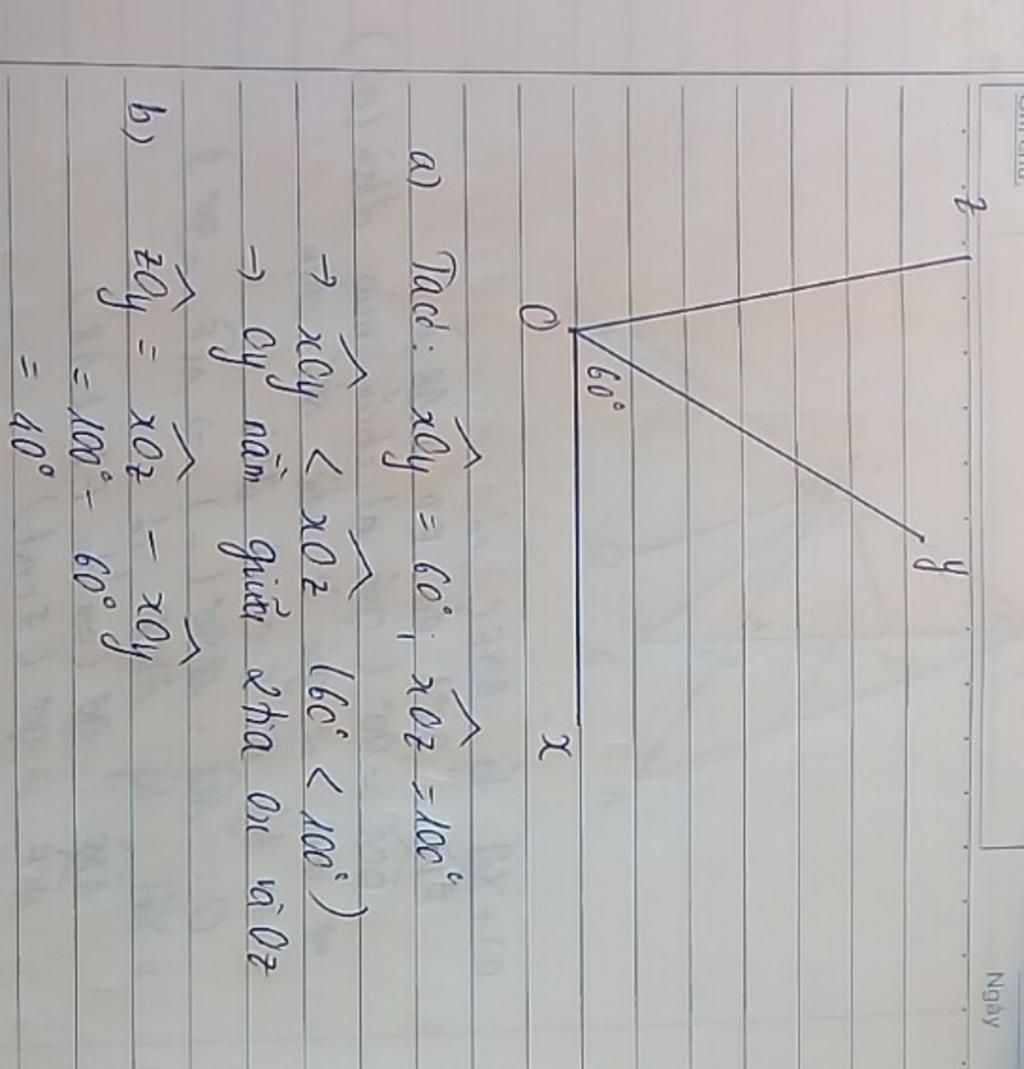 Ngày
z
y
60°
O
x
a) Ta có: xOy = 60°; xOz = 100°
→ xOy < xOz (60° < 100°)
→ Oy nằm giữa 2 tia Ox và Oz
b) zOy = xOz - xOy
= 100° - 60°
= 40°